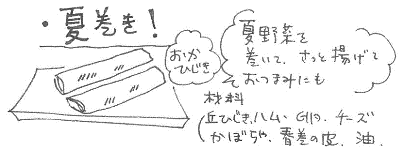 ・夏巻き！
おか
ひじき
夏野菜を
巻いて、さっと揚げて
おつまみにも
材料
丘ひじき、ハム、チーズ
かぼちゃ、春巻の皮、油、